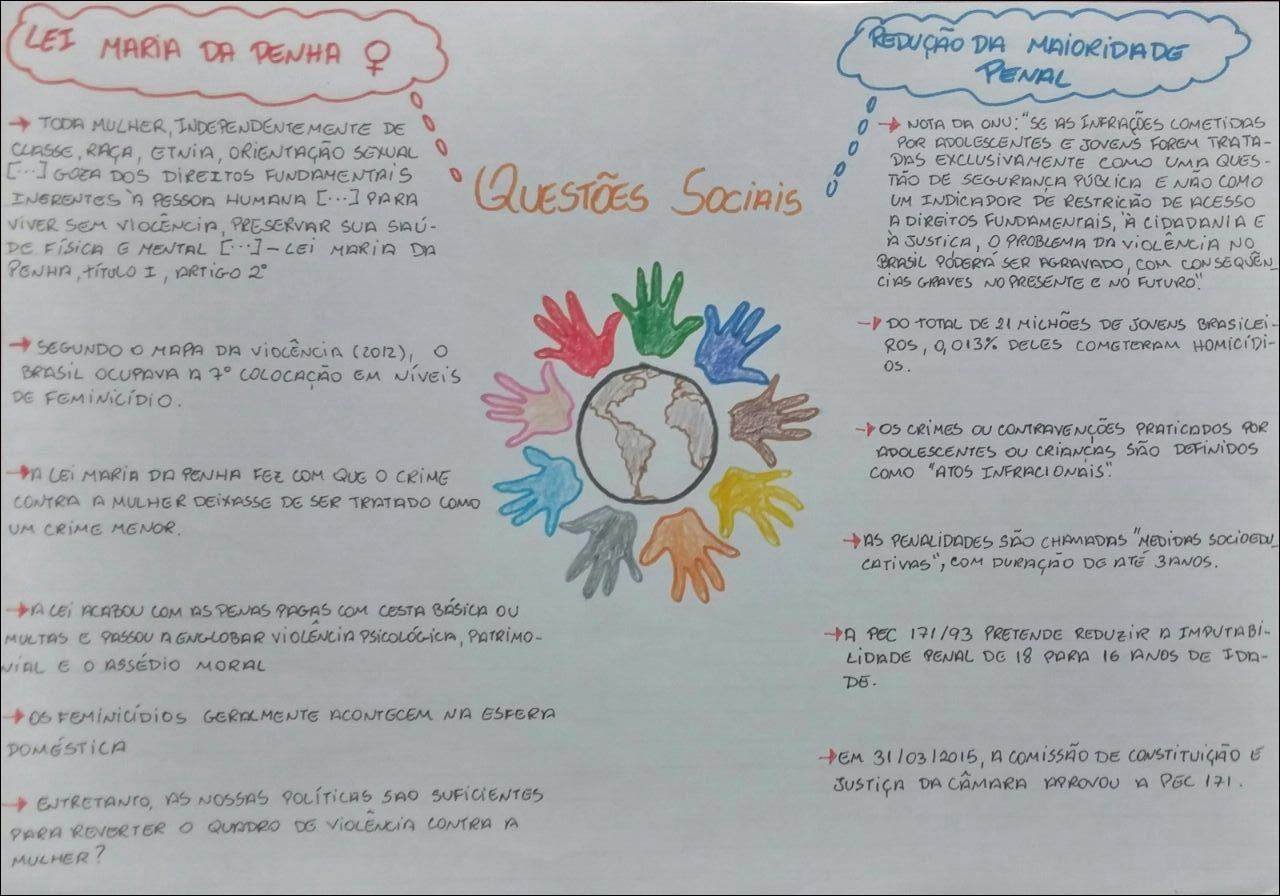 LEI MARIA DA PENHA ♀
→ TODA MULHER, INDEPENDENTEMENTE DE
CLASSE, RAÇA, ETNIA, ORIENTAÇÃO SEXUAL
[...] GOZA DOS DIREITOS FUNDAMENTAIS
INERENTES À PESSOA HUMANA [...] PARA
VIVER SEM VIOLÊNCIA, PRESERVAR SUA SAÚ-
DE FÍSICA E MENTAL [...] - LEI MARIA DA
PENHA, TÍTULO I, ARTIGO 2º
→ SEGUNDO O MAPA DA VIOLÊNCIA (2012), O
BRASIL OCUPAVA A 7º COLOCAÇÃO EM NÍVEIS
DE FEMINICÍDIO.
→ A LEI MARIA DA PENHA FEZ COM QUE O CRIME
CONTRA A MULHER DEIXASSE DE SER TRATADO COMO
UM CRIME MENOR.
→ A LEI ACABOU COM AS PENAS PAGAS COM CESTA BÁSICA OU
MULTAS E PASSOU A ENGLOBAR VIOLÊNCIA PSICOLÓGICA, PATRIMO-
NIAL E O ASSÉDIO MORAL
→ OS FEMINICÍDIOS GERALMENTE ACONTECEM NA ESFERA
DOMÉSTICA
→ ENTRETANTO, AS NOSSAS POLÍTICAS SAO SUFICIENTES
PARA REVERTER O QUADRO DE VIOLÊNCIA CONTRA A
MULHER?
QUESTÕES SOCIAIS
REDUÇÃO DA MAIORIDADE
PENAL
→ NOTA DA ONU: "SE AS INFRAÇÕES COMETIDAS
POR ADOLESCENTES E JOVENS FOREM TRATA-
DAS EXCLUSIVAMENTE COMO UMA QUES-
TÃO DE SEGURANÇA PÚBLICA E NÃO COMO
UM INDICADOR DE RESTRIÇÃO DE ACESSO
A DIREITOS FUNDAMENTAIS, À CIDADANIA E
À JUSTIÇA, O PROBLEMA DA VIOLÊNCIA NO
BRASIL PODERÁ SER AGRAVADO, COM CONSEQUÊN_
CIAS GRAVES NO PRESENTE E NO FUTURO."
→ DO TOTAL DE 21 MILHÕES DE JOVENS BRASILEI-
ROS, 0,013% DELES COMETERAM HOMICÍDI-
OS.
→ OS CRIMES OU CONTRAVENÇÕES PRATICADOS POR
ADOLESCENTES OU CRIANÇAS SÃO DEFINIDOS
COMO "ATOS INFRACIONAIS".
→ AS PENALIDADES SÃO CHAMADAS "MEDIDAS SOCIOEDU_
CATIVAS", COM DURAÇÃO DE ATÉ 3 ANOS.
→ A PEC 171/93 PRETENDE REDUZIR A IMPUTABI-
LIDADE PENAL DE 18 PARA 16 ANOS DE IDA-
DE.
→ EM 31/03/2015, A COMISSÃO DE CONSTITUIÇÃO E
JUSTIÇA DA CÂMARA APROVOU A PEC 171.